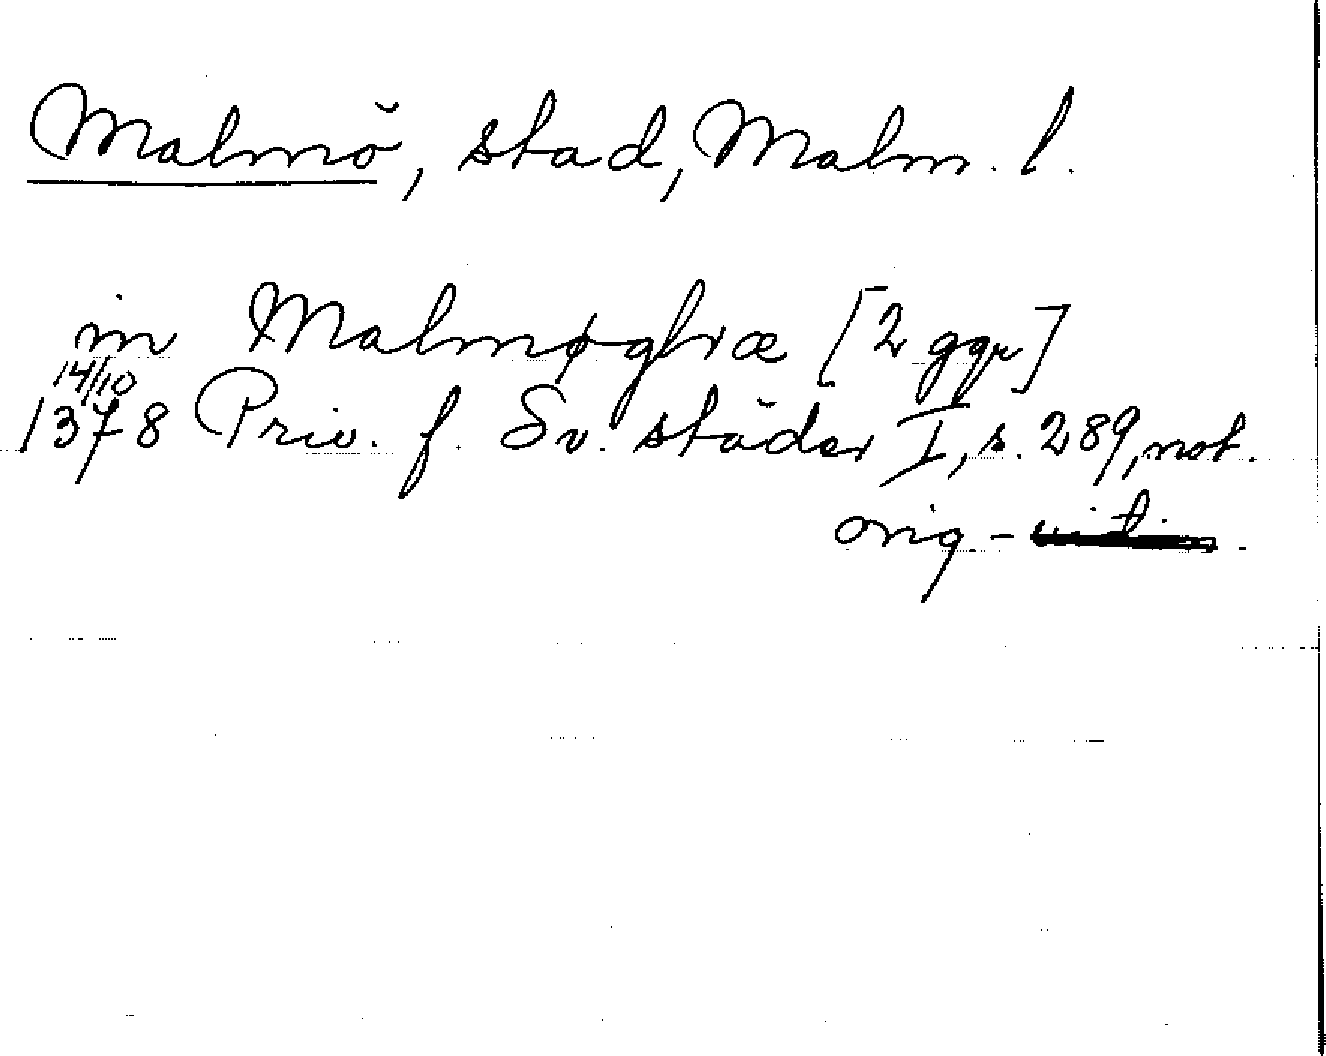 Malmö, stad, Malm. l.
in Malmøghræ [2 ggr]
14/10
1378 Priv. f. Sv. städer I, s. 289, not.
orig -